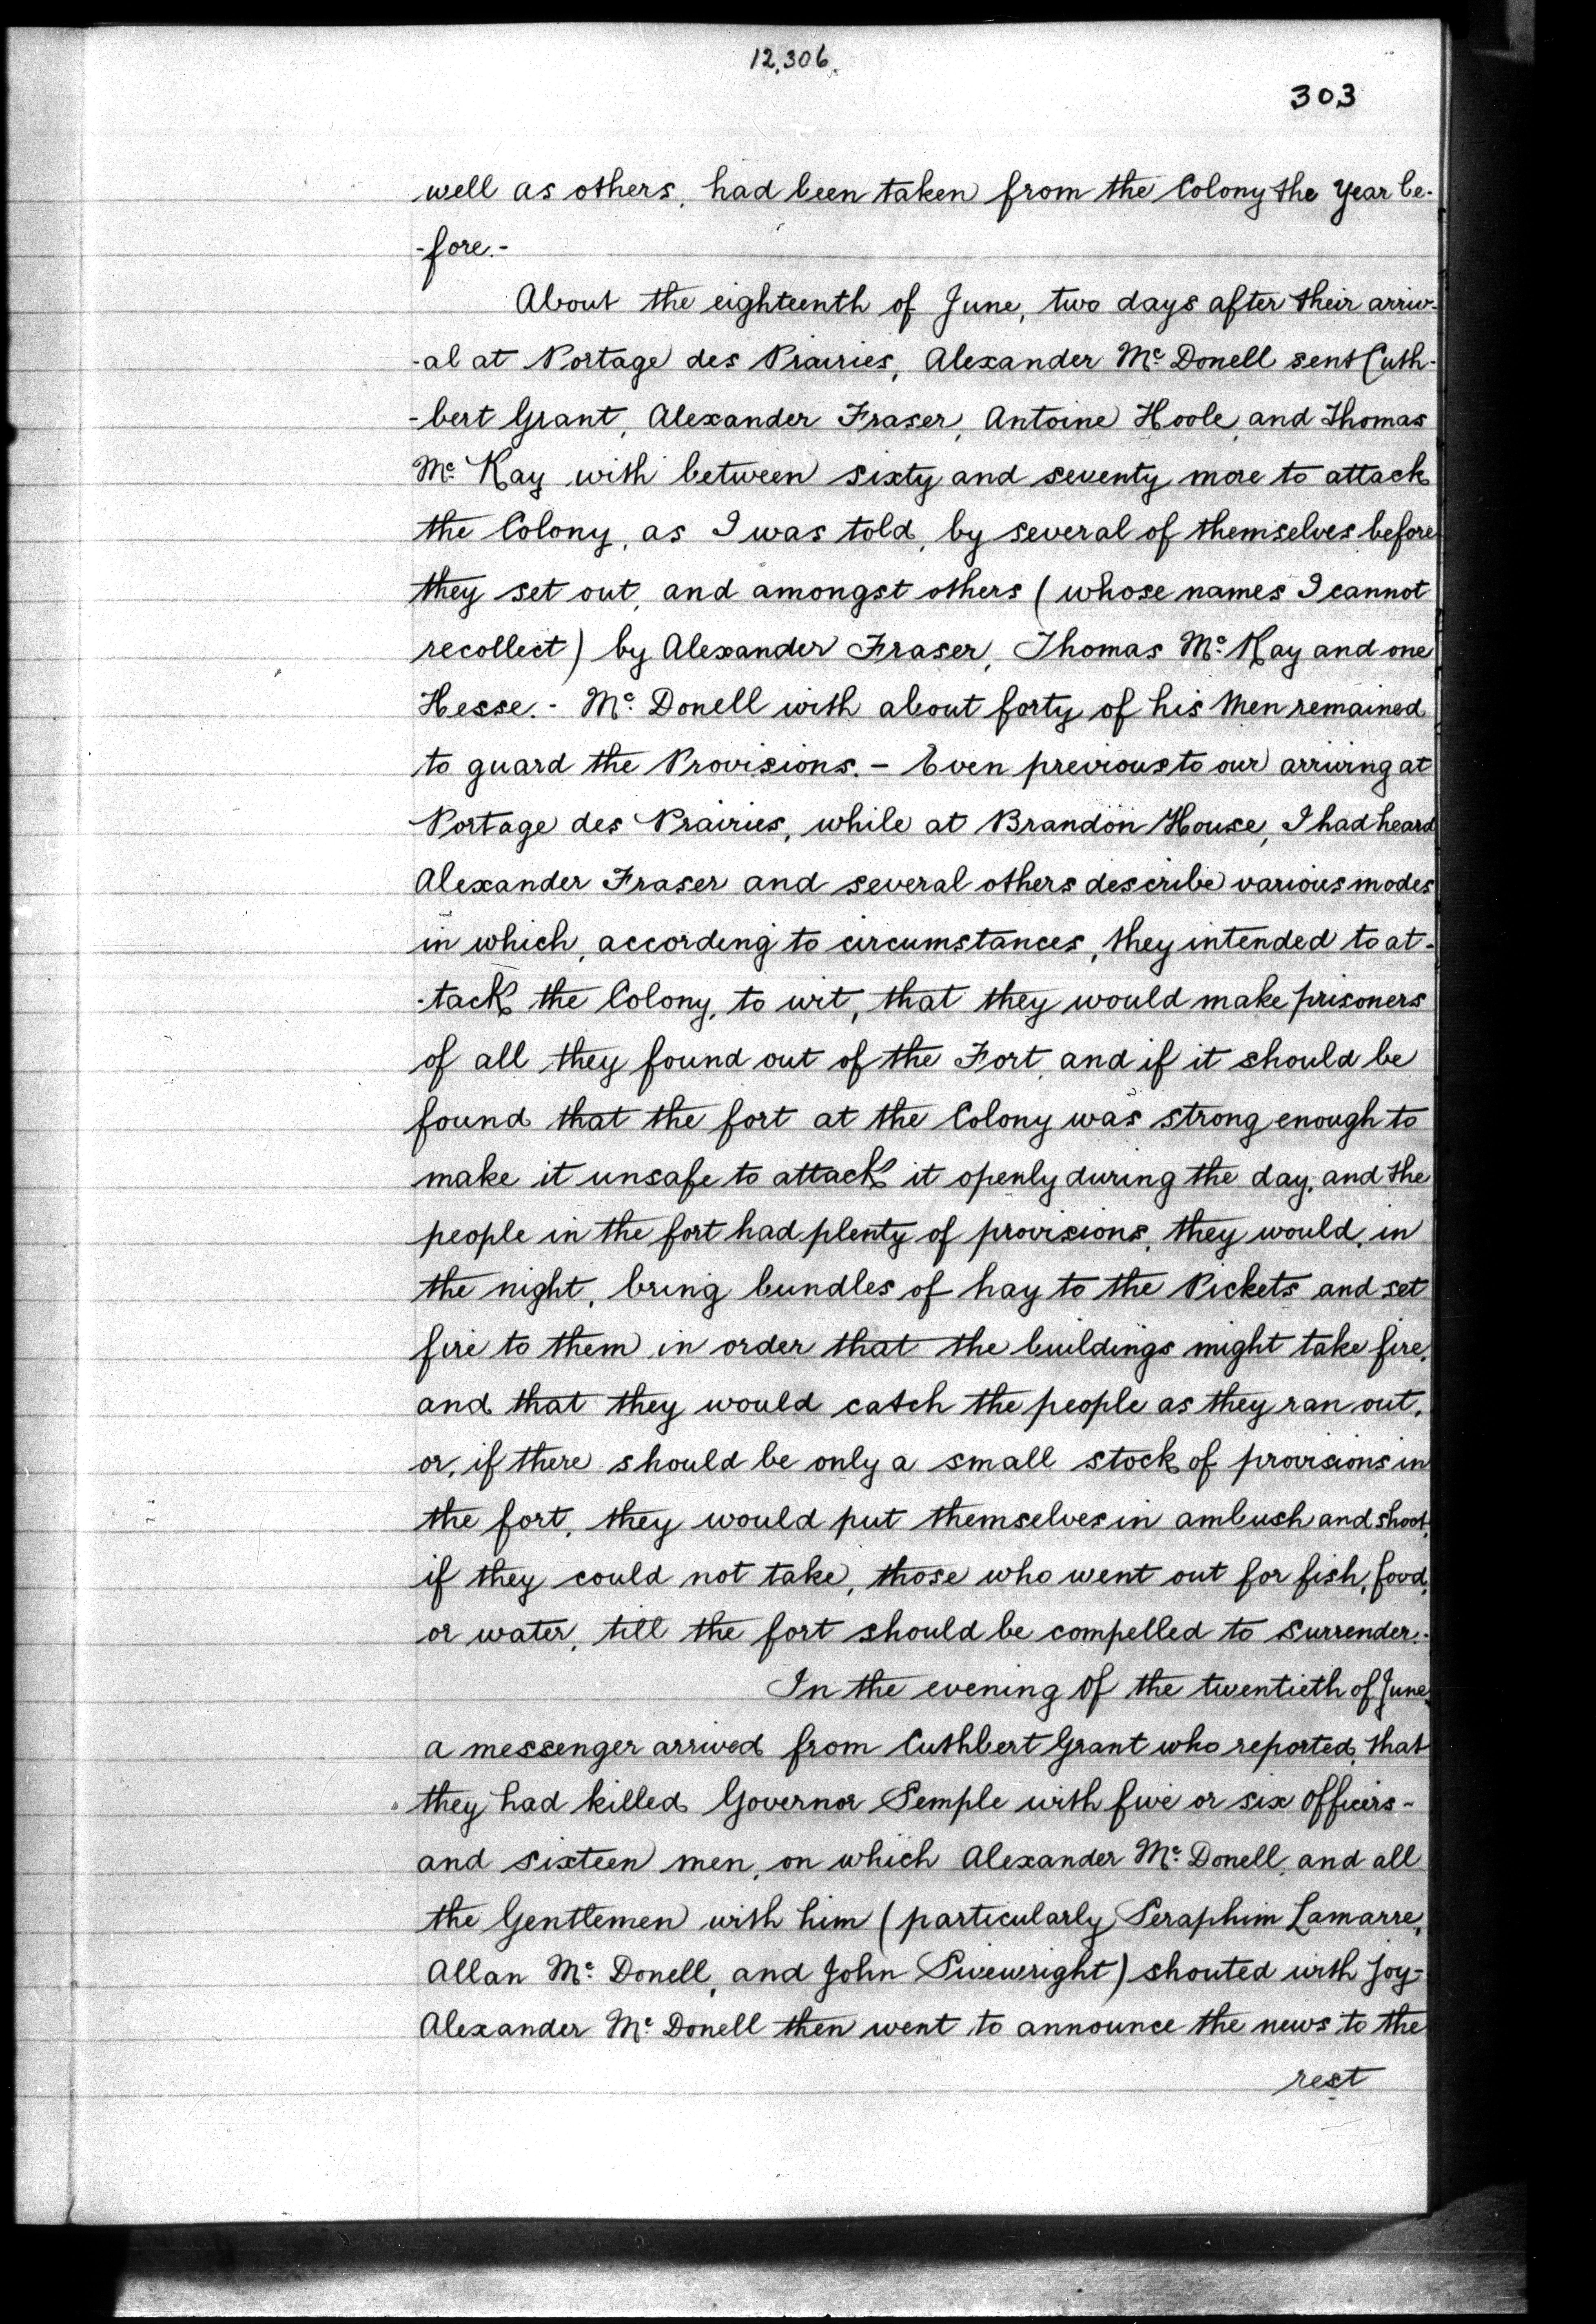 12.306.
303
well as others, had been taken from the Colony the Year be-
-fore.-
About the eighteenth of June, two days after their arriv-
-al at Portage des Prairies, Alexander Mc Donell sent Cuth-
-bert Grant, Alexander Fraser, Antoine Hoole, and Thomas
Mc Kay with between sixty and seventy more to attack
the Colony, as I was told, by several of themselves before
they set out, and amongst others (whose names I cannot
recollect) by Alexander Fraser, Thomas Mc Kay and one
Hesse.- Mc Donell with about forty of his Men remained
to guard the Provisions.- Even previous to our arriving at
Portage des Prairies, while at Brandon House, I had heard
Alexander Fraser and several others describe various modes
in which, according to circumstances, they intended to at-
-tack the Colony, to wit, that they would make prisoners
of all they found out of the Fort, and if it should be
found that the fort at the Colony was strong enough to
make it unsafe to attack it openly during the day, and the
people in the fort had plenty of provisions, they would, in
the night, bring bundles of hay to the Pickets and set
fire to them in order that the buildings might take fire,
and that they would catch the people as they ran out,
or, if there should be only a small stock of provisions in
the fort, they would put themselves in ambush and shoot,
if they could not take, those who went out for fish, food,
or water, till the fort should be compelled to surrender.-
In the evening of the twentieth of June,
a messenger arrived from Cuthbert Grant who reported, that
they had killed Governor Semple with five or six Officers-
and sixteen men, on which Alexander Mc Donell, and all
the Gentlemen with him (particularly Seraphim Lamarre,
Allan Mc Donell, and John Sivewright) shouted with joy-
Alexander Mc Donell then went to announce the news to the
rest